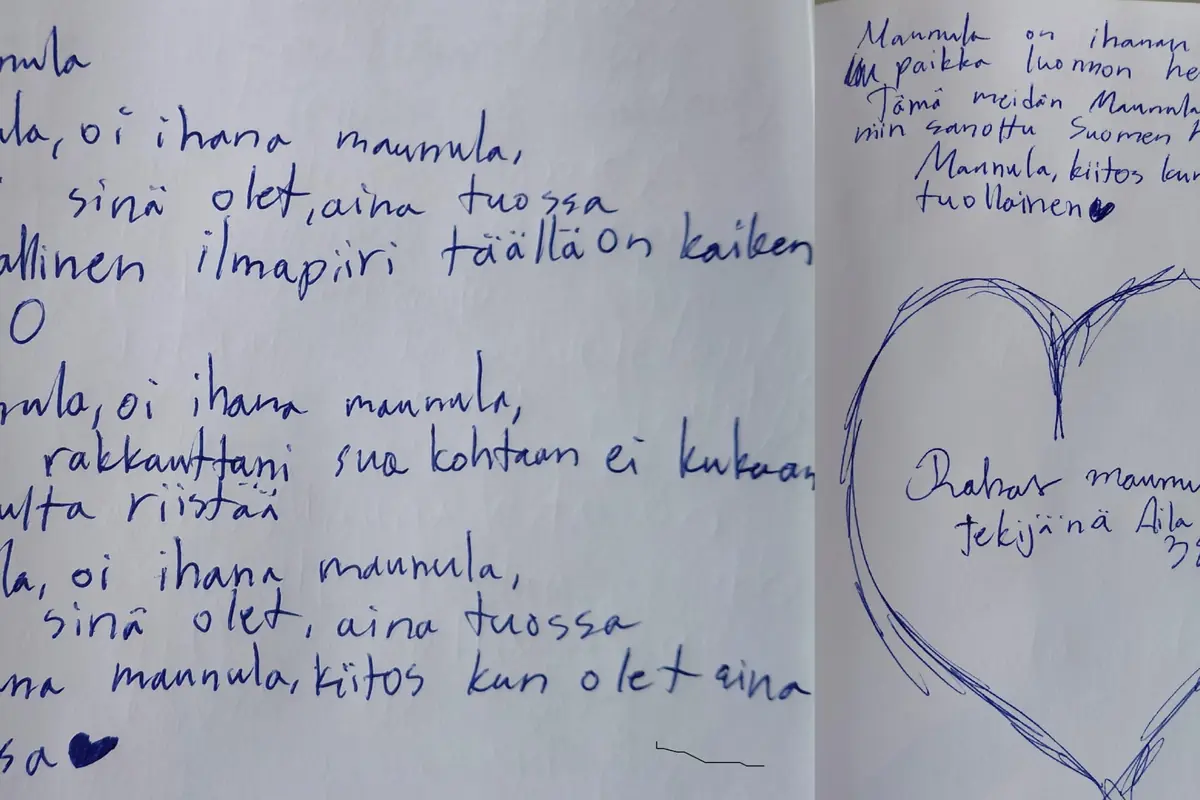 nula
ula, oi ihana maunula,
sinä olet, aina tuossa
allinen ilmapiiri täällä on kaiken
O
nula, oi ihana maunula,
rakkauttani sua kohtaan ei kukaan
ulta riistää
la, oi ihana maunula,
sinä olet, aina tuossa
na maunula, kiitos kun olet aina
sa
Maunula on ihanan
paikka luonnon he
Tämä meidän Maunula
niin sanottu Suomen
Maunula, kiitos kun
tuollainen
Rakas maunu
tekijänä Aila